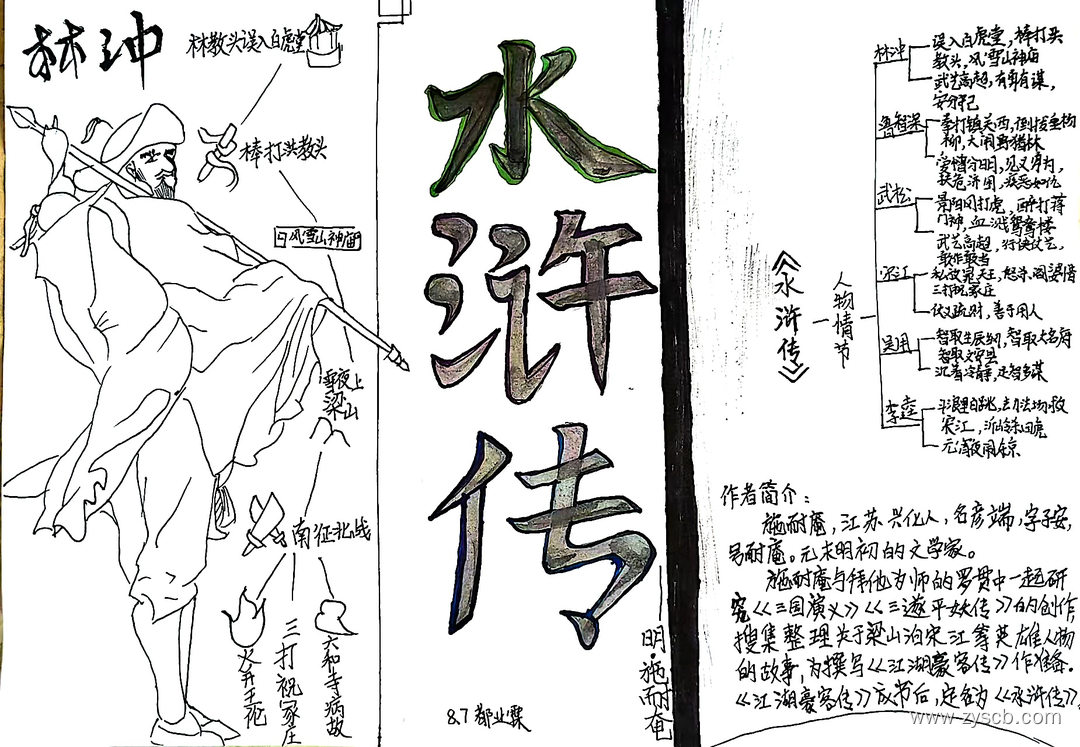 林冲
林教头误入白虎堂
棒打洪教头
风雪山神庙
雪夜上
梁山
南征北战
火并王伦
三打祝家庄
六和寺病故
水浒传
明·施耐奄
8.7
《水浒传》
人物情节
林冲
误入白虎堂，棒打头
教头，风雪山神庙
武艺高超，有勇有谋，
安分守己
鲁智深
拳打镇关西，倒拔垂杨
柳，大闹野猪林
爱憎分明，见义勇为，
扶危济困，疾恶如仇
武松
景阳冈打虎，醉打蒋
门神，血溅鸳鸯楼
武艺高超，行侠仗义，
敢作敢当
宋江
私放晁天王，怒杀阎婆惜
三打祝家庄
仗义疏财，善于用人
吴用
智取生辰纲，智取大名府
智取文安县
沉着冷静，足智多谋
李逵
斗浪里白跳，去力法场救
宋江，沂岭杀四虎
元宵夜闹东京
作者简介：
施耐庵，江苏兴化人，名彦端，字子安，
号耐庵。元末明初的文学家。
施耐庵与拜他为师的罗贯中一起研
究《三国演义》《三遂平妖传》的创作，
搜集整理关于梁山泊宋江等英雄人物
的故事，为撰写《江湖豪客传》作准备.
《江湖豪客传》成书后，定名为《水浒传》
www.zyscb.com